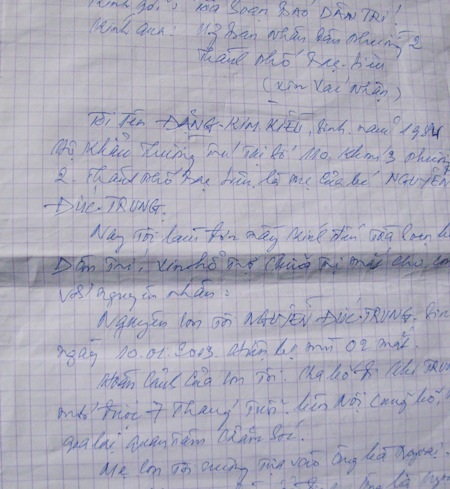 Kính gởi: Toà Soạn BÁO DÂN TRÍ!
Kính qua: Uỷ Ban Nhân Dân Phường 2
Thành Phố Bạc Liêu
(xin Xác Nhận)
Tôi Tên ĐẶNG-KIM-KIỀU, Sinh năm 1984
Hộ Khẩu Thường Trú Tại Số 110, Khóm 3 Phường
2. Thành Phố Bạc Liêu, là mẹ Của bé NGUYỄN
ĐỨC-TRUNG.
Nay Tôi làm đơn này Kính đến Toà Soạn
Dân Trí, xin hỗ trợ Chữa Trị mắt cho
với nguyên nhân:
Nguyên Con Tôi NGUYỄN-ĐỨC-TRUNG, Sin
ngày 10.01.2013. hiện bị mù 02 mắt.
Hoàn Cảnh Của Con Tôi. Cha bỏ đi Khi TRUN
mới được 7 Tháng Tuổi. bên Nội Cũng bỏ.
quan Tâm Chăm Sóc.
Mẹ Con Tôi sống Tựa vào Ông bà Ngoại.